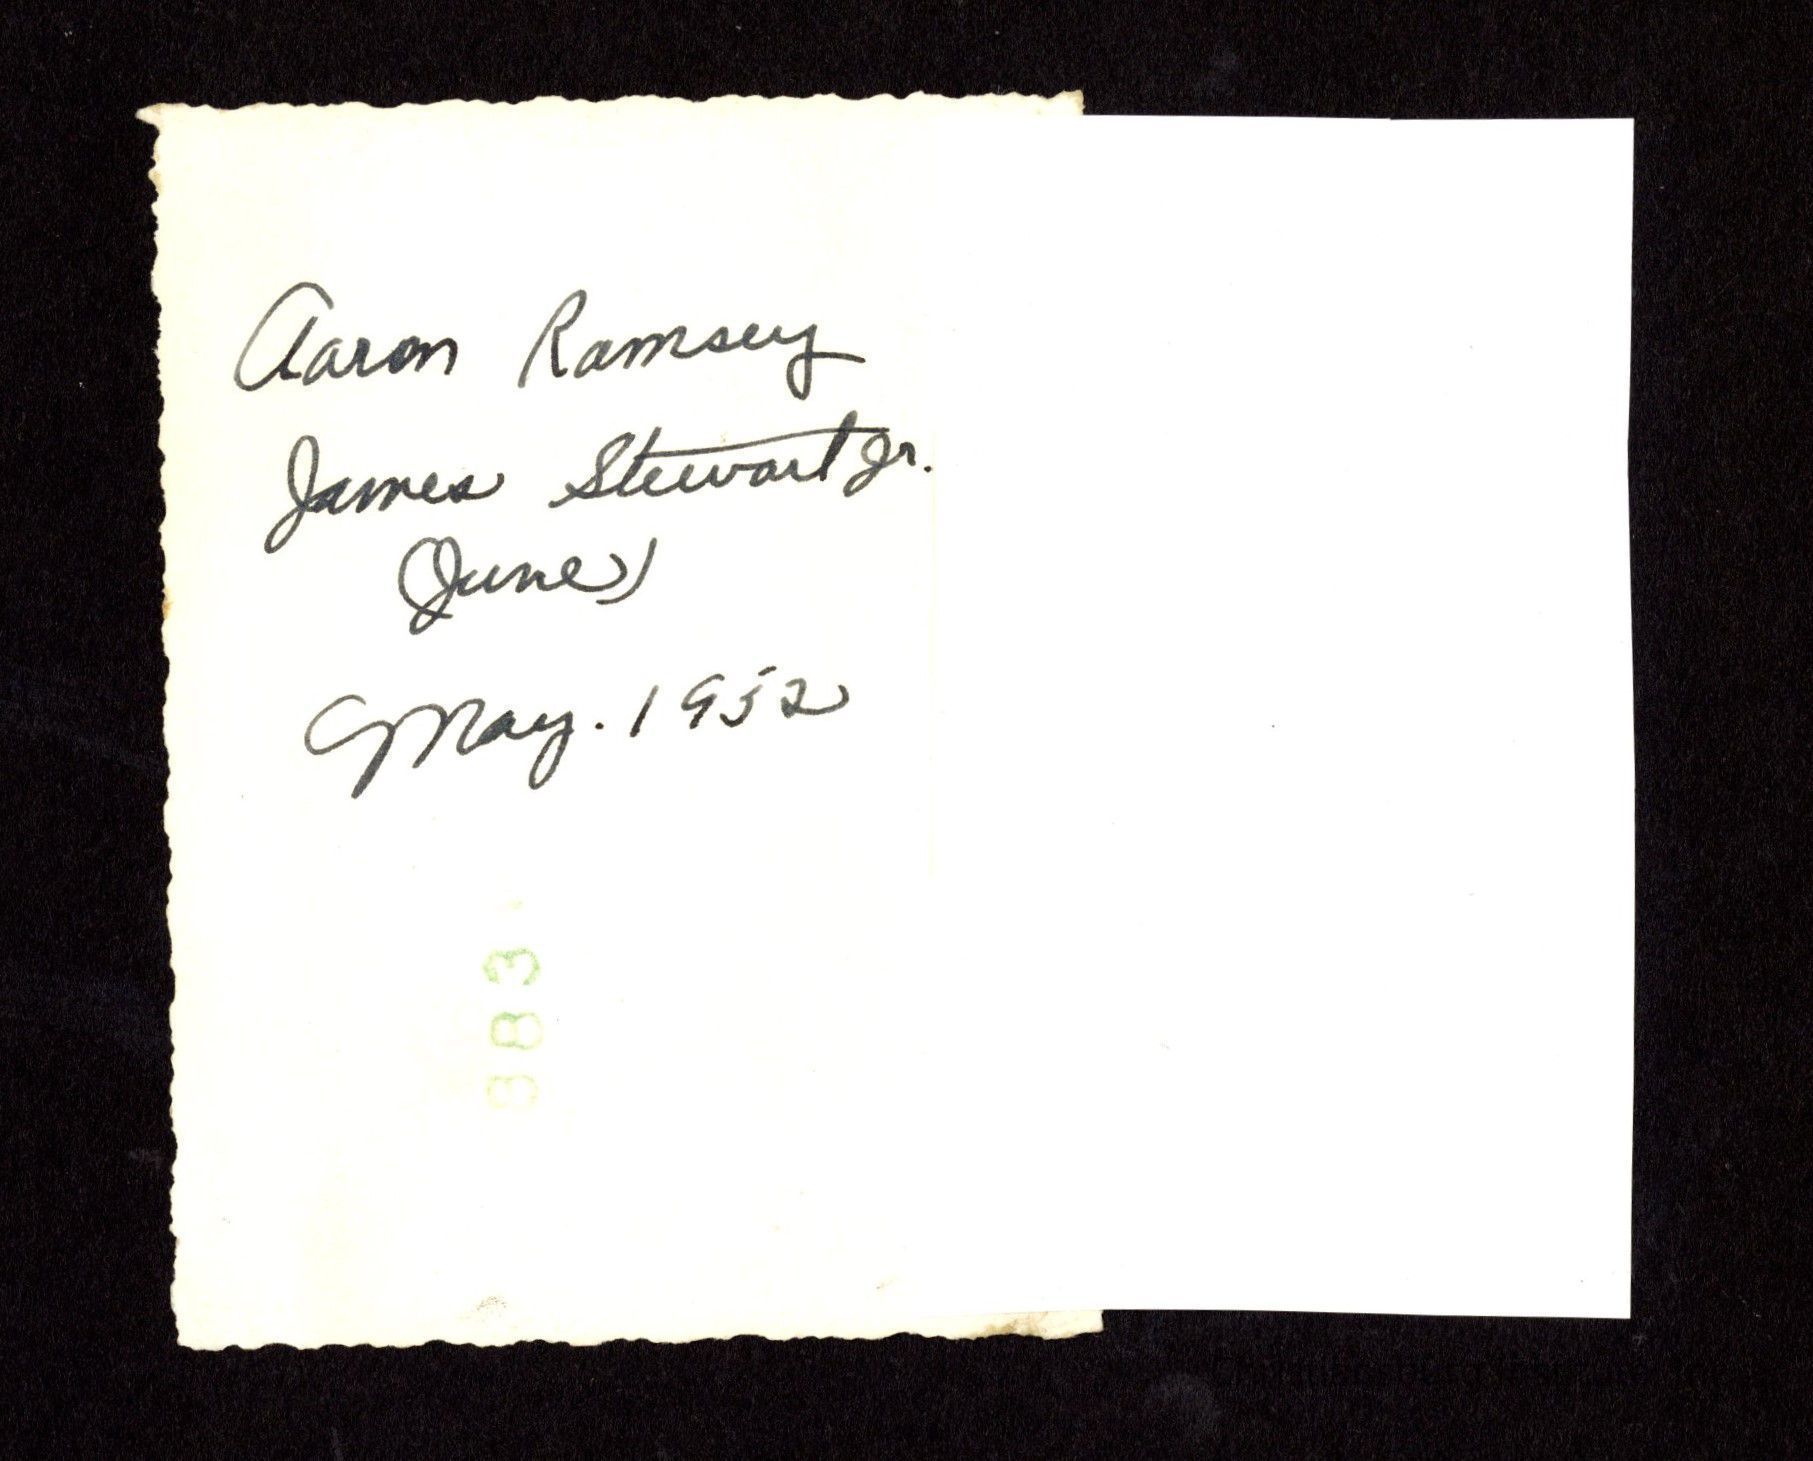 Aaron Ramsey
James Stewart Jr.
(June)
May. 1952
883